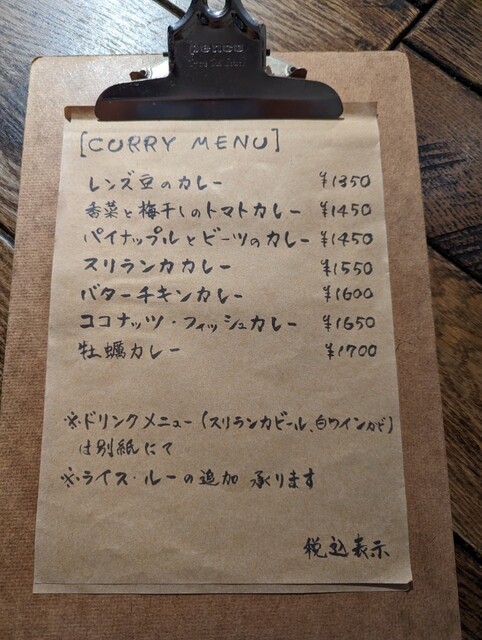 penco
[CURRY MENU]
レンズ豆のカレー ¥1350
香菜と梅干しのトマトカレー ¥1450
パイナップルとビーツのカレー ¥1450
スリランカカレー ¥1550
バターチキンカレー ¥1600
ココナッツ・フィッシュカレー ¥1650
牡蠣カレー ¥1700
※ドリンクメニュー(スリランカビール、白ワインなど)
は別紙にて
※ライス・ルーの追加 承ります
税込表示